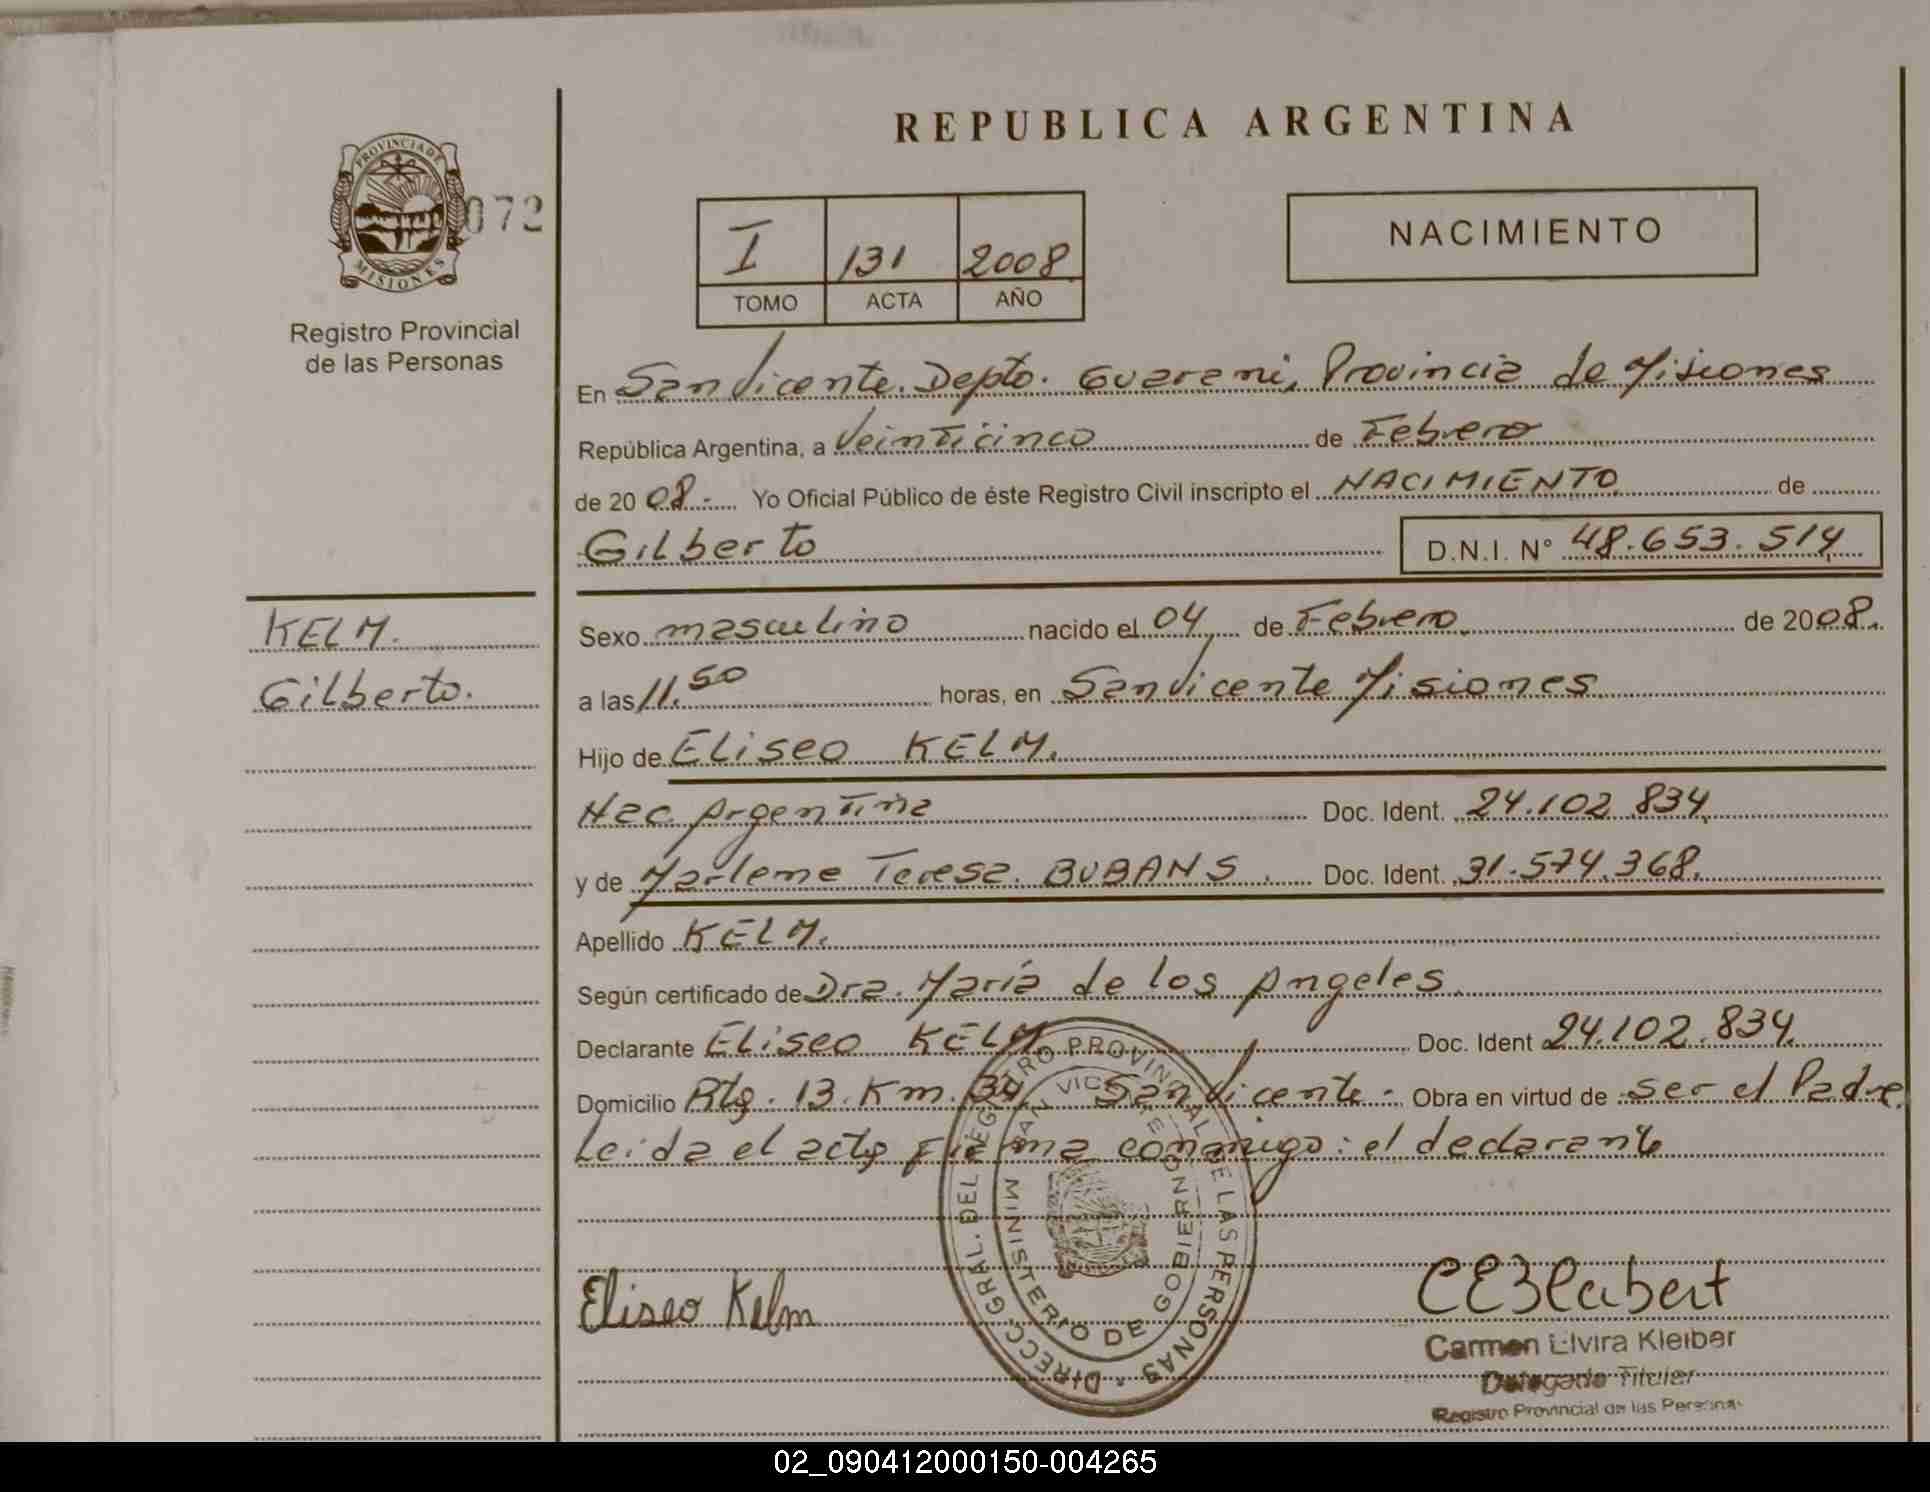 REPUBLICA ARGENTINA
PROVINCIA DE
MISIONES
072
Registro Provincial
de las Personas
I 131 2008
TOMO ACTA AÑO
NACIMIENTO
En San Vicente. Depto. Guarani, Provincia de Misiones
República Argentina, a Veinticinco de Febrero
de 20 08.- Yo Oficial Público de éste Registro Civil inscripto el NACIMIENTO de
Gilberto D.N.I. N° 48.653.514
KELM.
Gilberto.
Sexo masculino nacido el 04 de Febrero de 2008.
a las 11.50 horas, en San Vicente Misiones
Hijo de Eliseo KELM.
Nac Argentina Doc. Ident. 24.102.834
y de Marlene Teresa. BUBANS. Doc. Ident. 31.574.368.
Apellido KELM.
Según certificado de Dra. María de los Angeles
Declarante Eliseo KELM Doc. Ident 24.102.834.
Domicilio Rta. 13. Km. 34 San Vicente - Obra en virtud de ser el Padre
Leida el acta firma conmigo: el declarante
DIRECC. GRAL. DEL REGISTRO PROVINCIAL DE LAS PERSONAS
SAN VICENTE
MINISTERIO DE GOBIERNO
Eliseo Kelm
Carmen Elvira Kleiber
Delegado Titular
Registro Provincial de las Personas
02_090412000150-004265